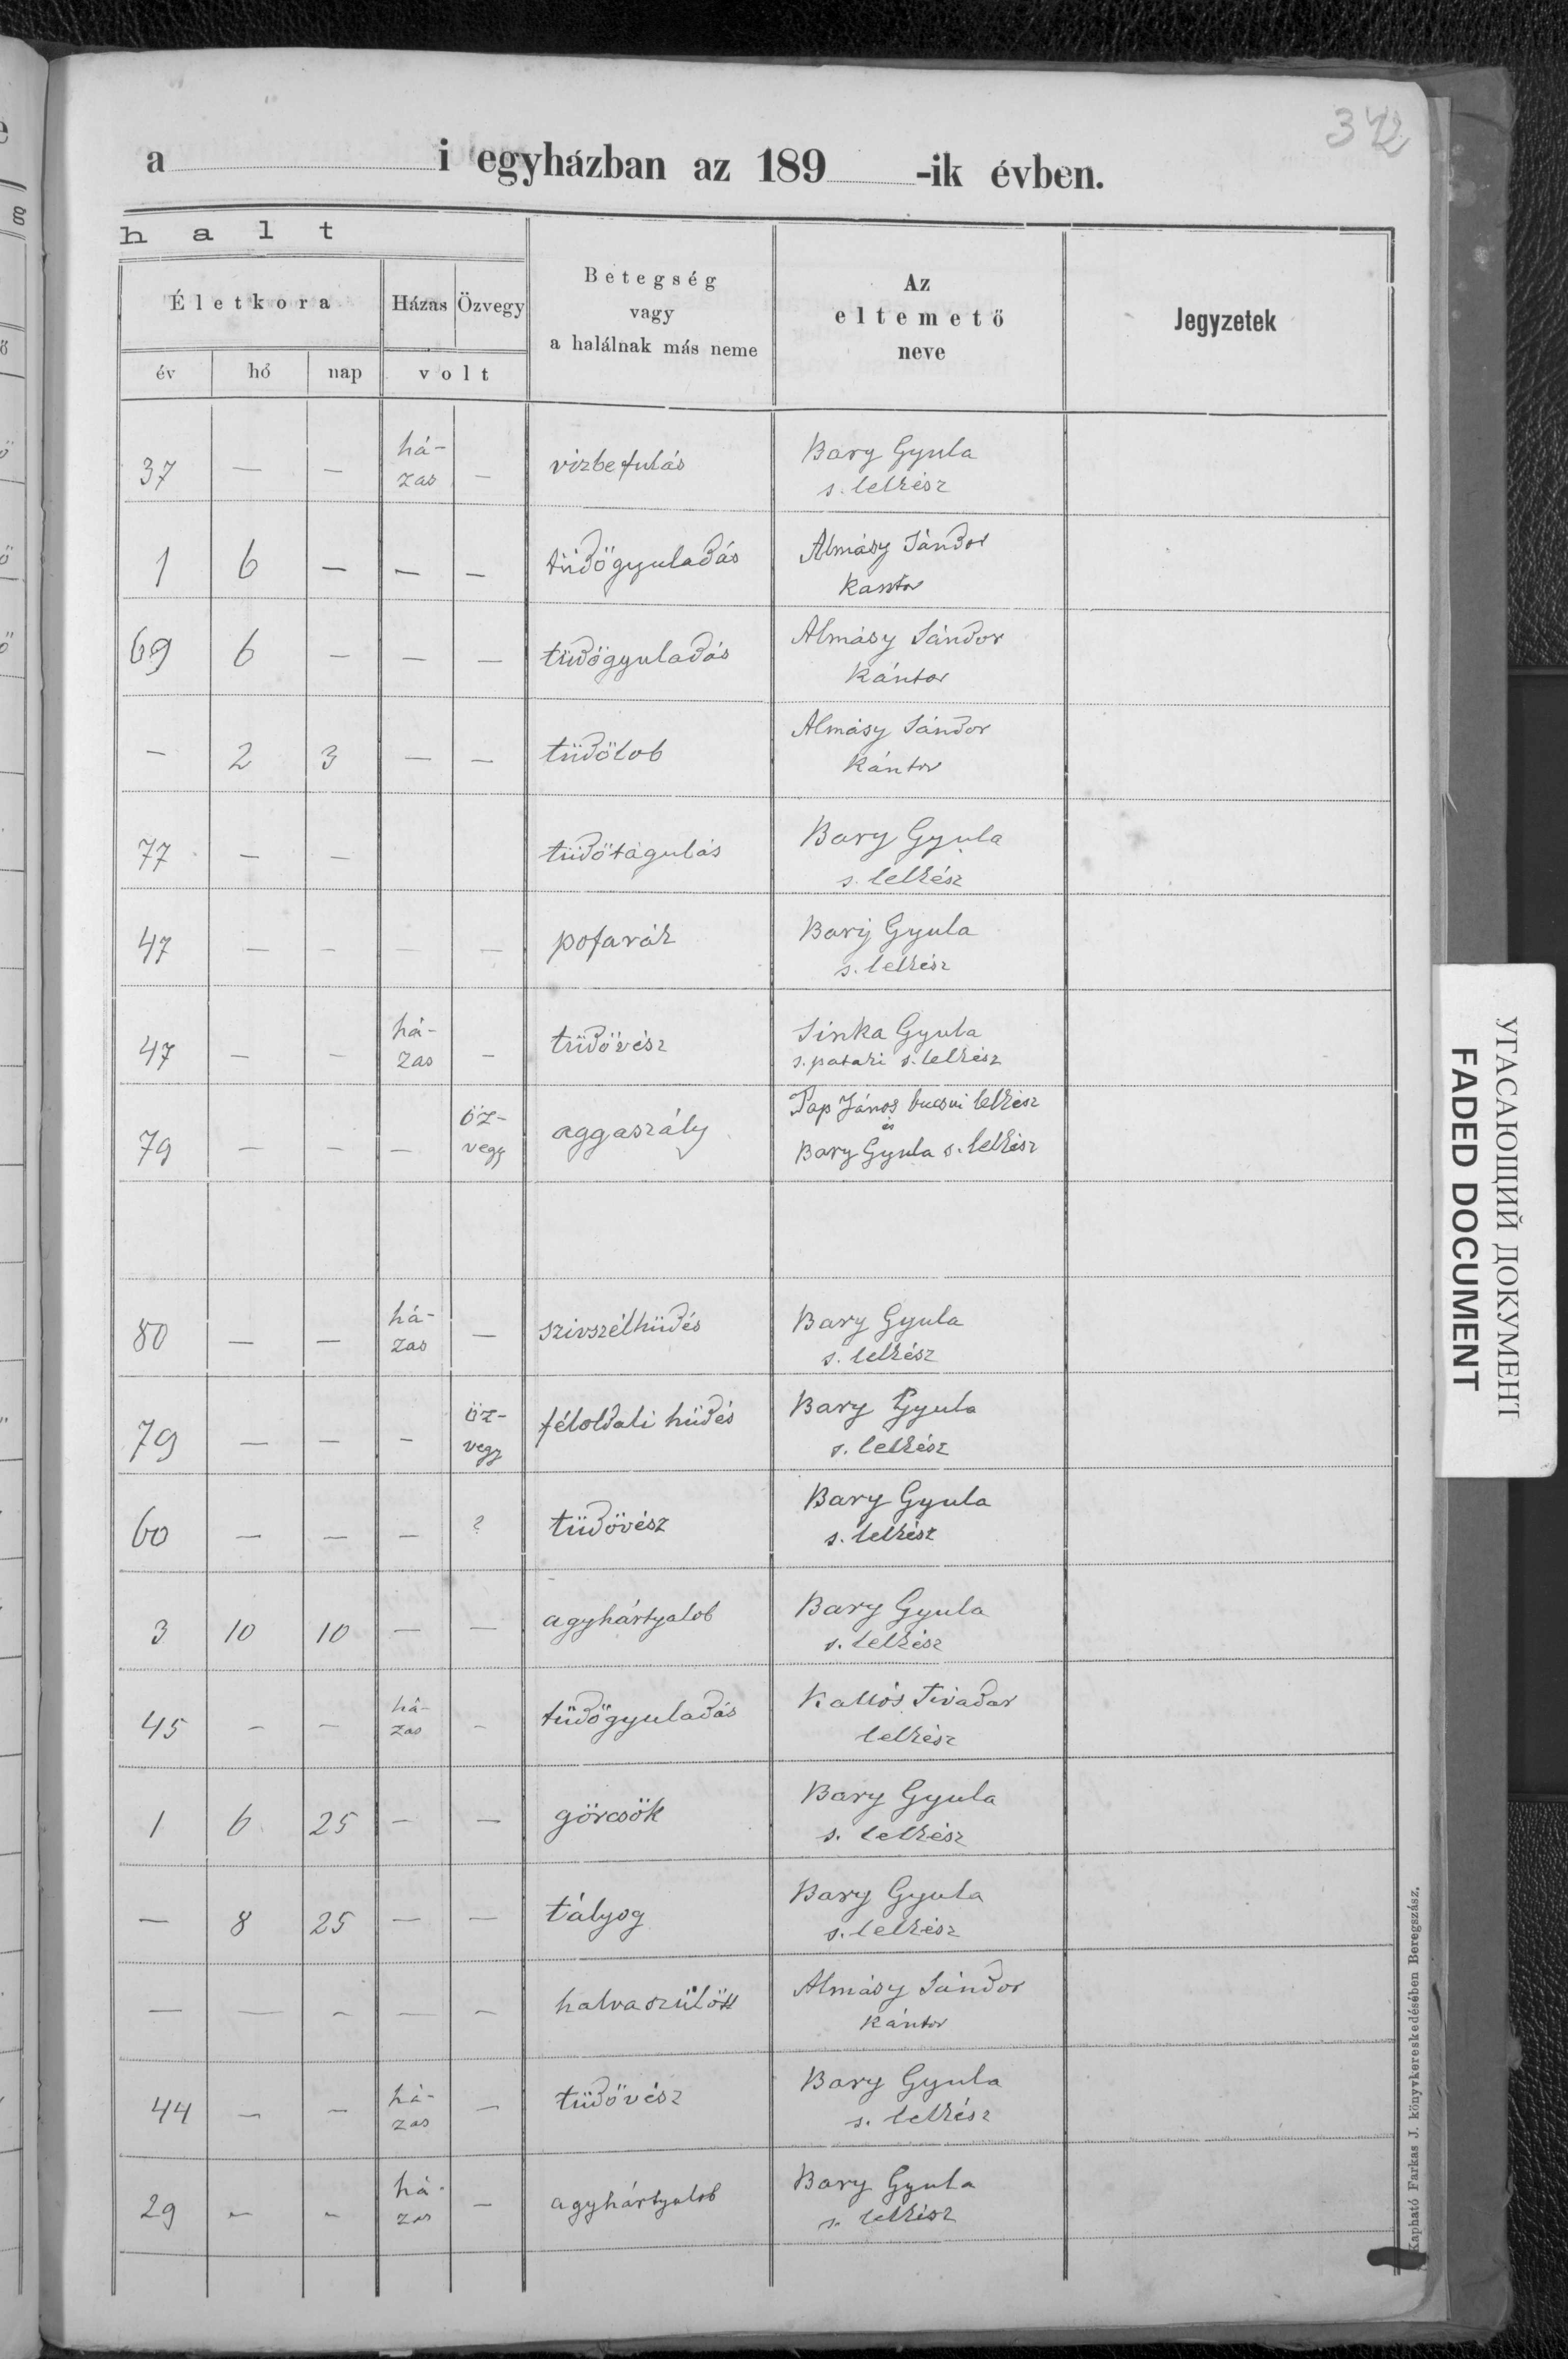 342
a i egyházban az 189 -ik évben.
halt
Életkora Házas Özvegy Betegség vagy a halálnak más neme Az eltemető neve Jegyzetek
év hó nap volt
37 — — há-zas — vizbefulás Bary Gyula
s. lelkész
1 6 — — — tüdőgyuladás Almásy Sándor
kantor
69 6 — — — tüdőgyuladás Almásy Sándor
Kántor
— 2 3 — — tüdőlob Almásy Sándor
Kántor
77 — — tüdőtágulás Bary Gyula
s. lelkész
47 — — — — pofarák Bary Gyula
s. lelkész
47 — — há-zas — tüdővész Sinka Gyula
s. pataki s. lelkész
79 — — — öz-vegy aggaszály Pap János bucsui lelkész
és
Bary Gyula s. lelkész
80 — — há-zas — szivszélhüdés Bary Gyula
s. lelkész
79 — — — öz-vegy féloldali hüdés Bary Gyula
s. lelkész
60 — — — ? tüdővész Bary Gyula
s. lelkész
3 10 10 — — agyhártyalob Bary Gyula
s. lelkész
45 — — há-zas — tüdőgyuladás Kallós Tivadar
lelkész
1 6 25 — — görcsök Bary Gyula
s. lelkész
— 8 25 — — tályog Bary Gyula
s. lelkész
— — — — — halva szülött Almásy Sándor
Kántor
44 — — há-zas — tüdővész Bary Gyula
s. lelkész
29 — — há-zas — agyhártyalob Bary Gyula
s. lelkész
Kapható Farkas J. könyvkereskedésében Beregszász.
УГАСАЮЩИЙ ДОКУМЕНТ
FADED DOCUMENT